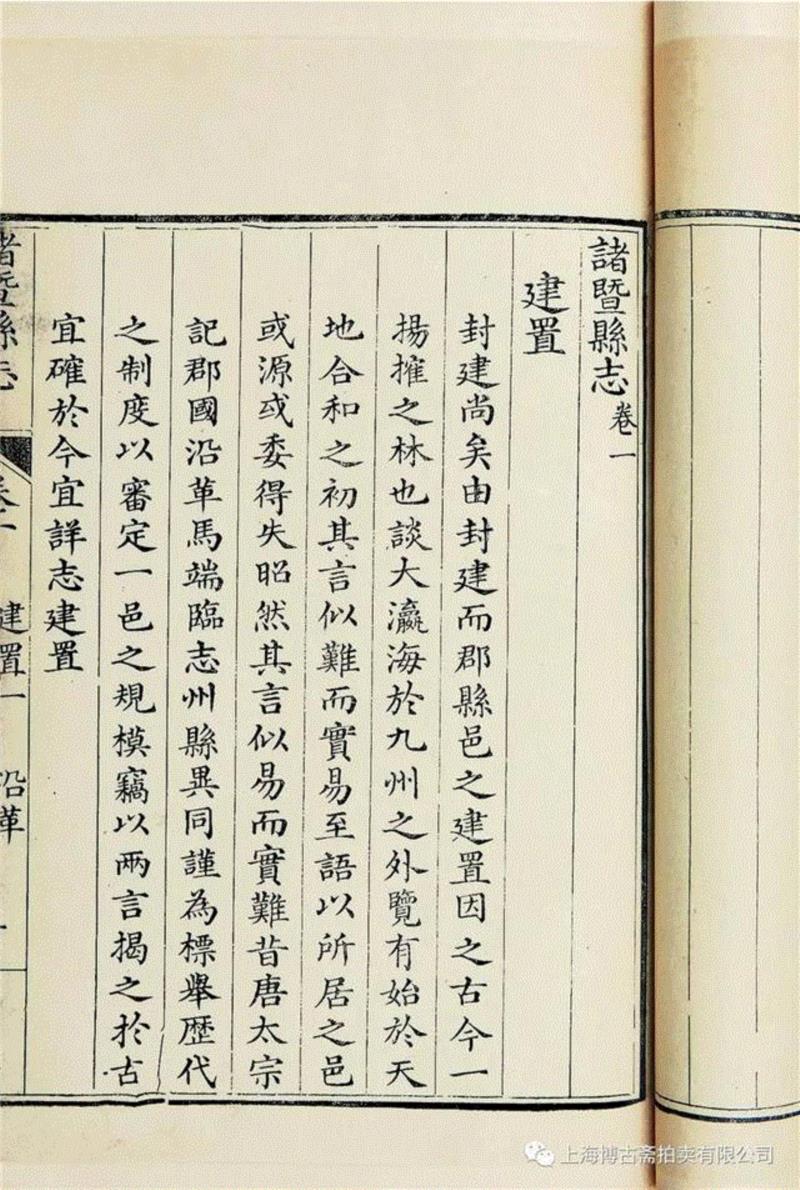 諸暨縣志 卷一
建置
封建尚矣由封建而郡縣邑之建置因之古今一
揚搉之林也談大瀛海於九州之外覽有始於天
地合和之初其言似難而實易至語以所居之邑
或源或委得失昭然其言似易而實難昔唐太宗
記郡國沿革馬端臨志州縣異同謹為標舉歷代
之制度以審定一邑之規模竊以兩言揭之於古
宜確於今宜詳志建置
諸暨縣志 卷一 建置一 沿革 一
上海博古斋拍卖有限公司